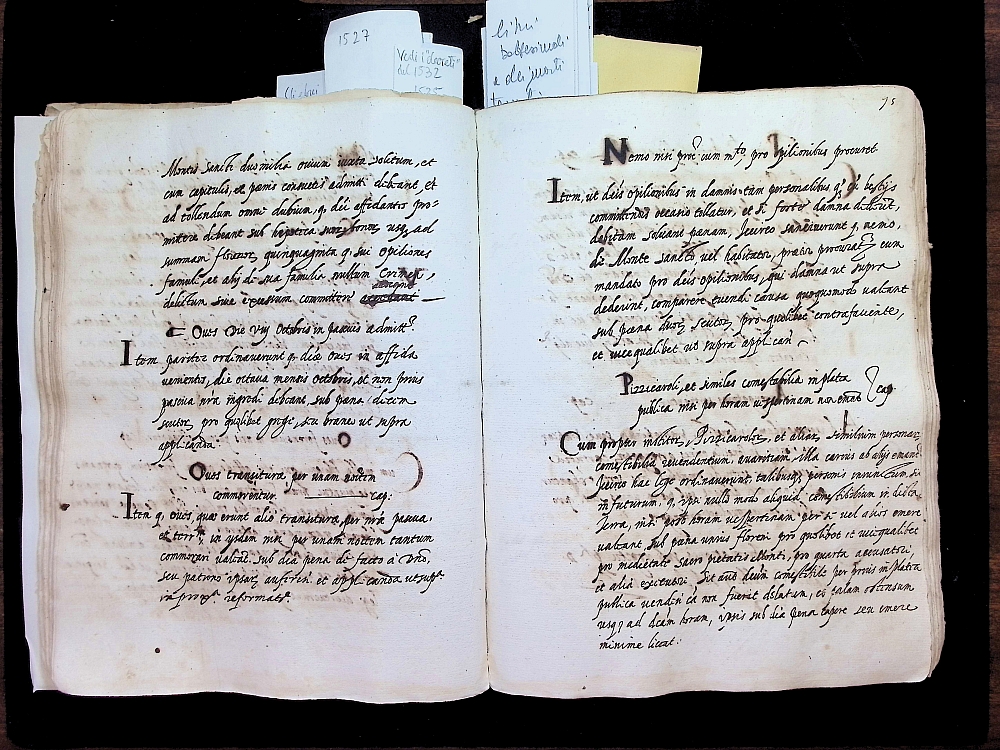 1527
Vedi i "decreti"
del 1532
1535
libri
battesimali
e dei morti
95
Montis Sancti duo milia ovium iuxta solitum, et
cum capitulis, et pœnis consuetis admitti debeant, et
ad tollendum omne dubium, q. dci affidantes pro-
mittere debeant sub hypoteca bonor, usq ad
summam florenor quinquaginta q. sui opiliones
famuli, et alij de sua familia nullum Crimen,
delictum sive excessum committere
Oves die viij Octobris in pascuis admittr.
Item pariter ordinaverunt q. dice oves in affida
venientes, die octava mensis octobris, et non prius
pascua nra ingredi debeant, sub pœna decem
scutor, pro quolibet grege, seu branco ut supra
applicanda.
Oves transituræ per unam noctem
commorentur. cap:
Item q. oves, quæ erunt alio transituræ, per nra pascua,
et terr, in eysdem nisi per unam noctem tantum
commorari valeant. sub dicta pena de facto a Dno,
seu patrono ipsar, auferen. et applicanda ut supr
in prox. reformat.
Nemo nisi pro cum mto, pro opilionibus procuret
Item, ut dcis opilionibus in damnis tam personalibus, q. cu bestijs
committendi occasio tollatur, et si forte damna dederint,
debitam solvant pœnam, Iccirco sanxiverunt q. nemo,
de Monte Sancto, vel habitator, præter procurat cum
mandato pro dcis opilionibus, qui damna ut supra
dederint, comparere tuendi causa quoquomodo valeant
sub pœna duor scutor, pro quolibet contrafaciente,
et vice qualibet ut supra applican.
Pizzicaroli, et similes comestibilia in platea
publica nisi per horam vespertinam non emant cap
Cum propter institor, Pizzicarolor, et alior, similium personar
comestibilia revendentium, avaritiam illa carius ab alijs emant
Iccirco hac lege ordinaverunt, talibusq personis iniunctum sit
in futurum, q. ipsi nullo modo aliquid comestibilium in dicta
Terra, nisi post horam vespertinam per se vel alios emere
valeant, sub pœna unius floreni pro quolibet et vice qualibet
pro medietate Sacro pietatis Monti, pro quarta accusatori,
et alia executori. Sic aut deum comestibile per prius in platea
publica vendi ea non fuerit delatum, et palam ostensum
usq ad dcam horam, ipsis sub dicta pena capere seu emere
minime liceat: